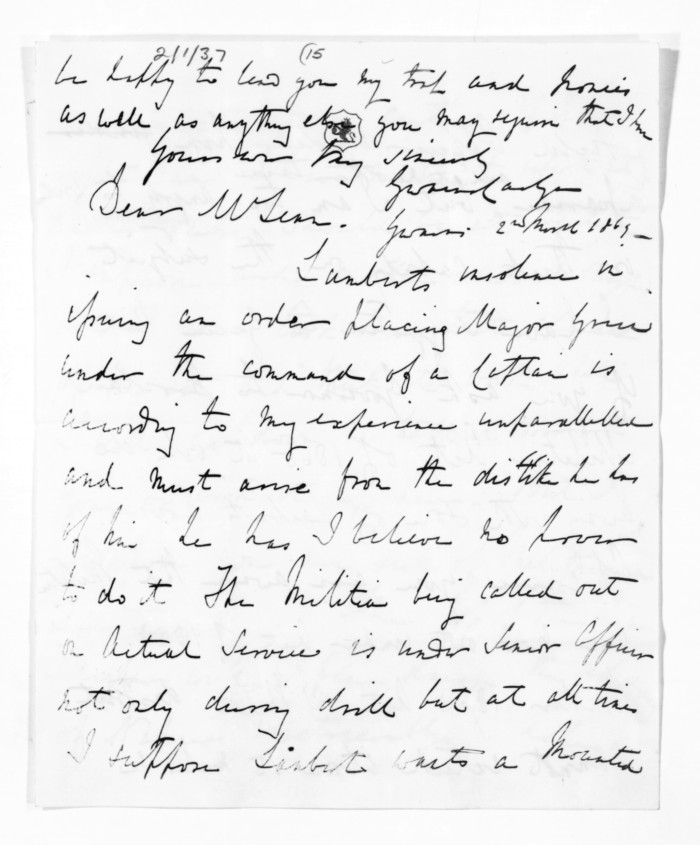 2/1/37 (15
be happy to lend you my trap and Ponies
as well as anything else you may require that I have
Yours very sincerely
Dear McLean. 2nd March 1869
Lamberts insolence in
issuing an order placing Major Green
under the command of a Captain is
according to my experience unparallelled
and must arise from the dislike he has
of him he has I believe no power
to do it The Militia being called out
on Actual Service is under Senior Officer
not only during drill but at all times
I suppose Lambert wants a Mounted